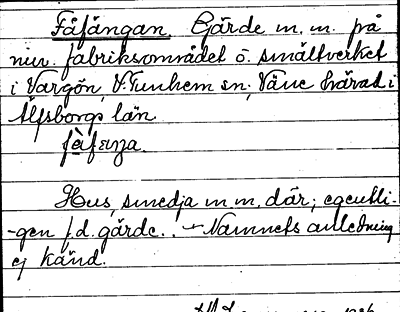 Fåfängan. Gärde m. m. på
nuv. fabriksområdet ö. smältverket
i Vargön, V. Tunhem sn, Väne härad i
Älfsborgs län.
Hus, smedja m m, där; egentli-
-gen f. d. gärde. – Namnets anledning
ej känd.